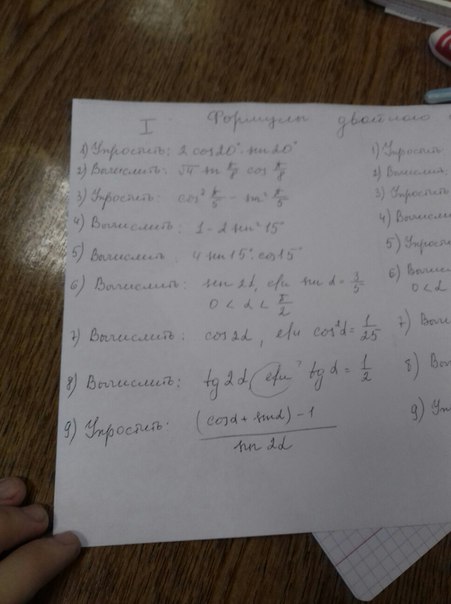 I Формулы двойного
1) Упростить: 2 cos20° · sin20°
2) Вычислить: √4 sin π/8 cos π/8
3) Упростить: cos² π/5 - sin² π/5
4) Вычислить: 1 - 2 sin² 15
5) Вычислить: 4 sin 15° · cos 15
6) Вычислить: sin 2α, если sin α = 3/5
0 < α < π/2
7) Вычислить: cos 2α, если cos²α = 1/25
8) Вычислить: tg 2α если tg α = 1/2
9) Упростить: (cosα + sinα) - 1
sin 2α
1) Упростить
2) Вычислил
3) Упростить
4) Вычисл
5) Упрост
6) Вычис
0 < α
7) Вычи
8) Вы
9) Уп